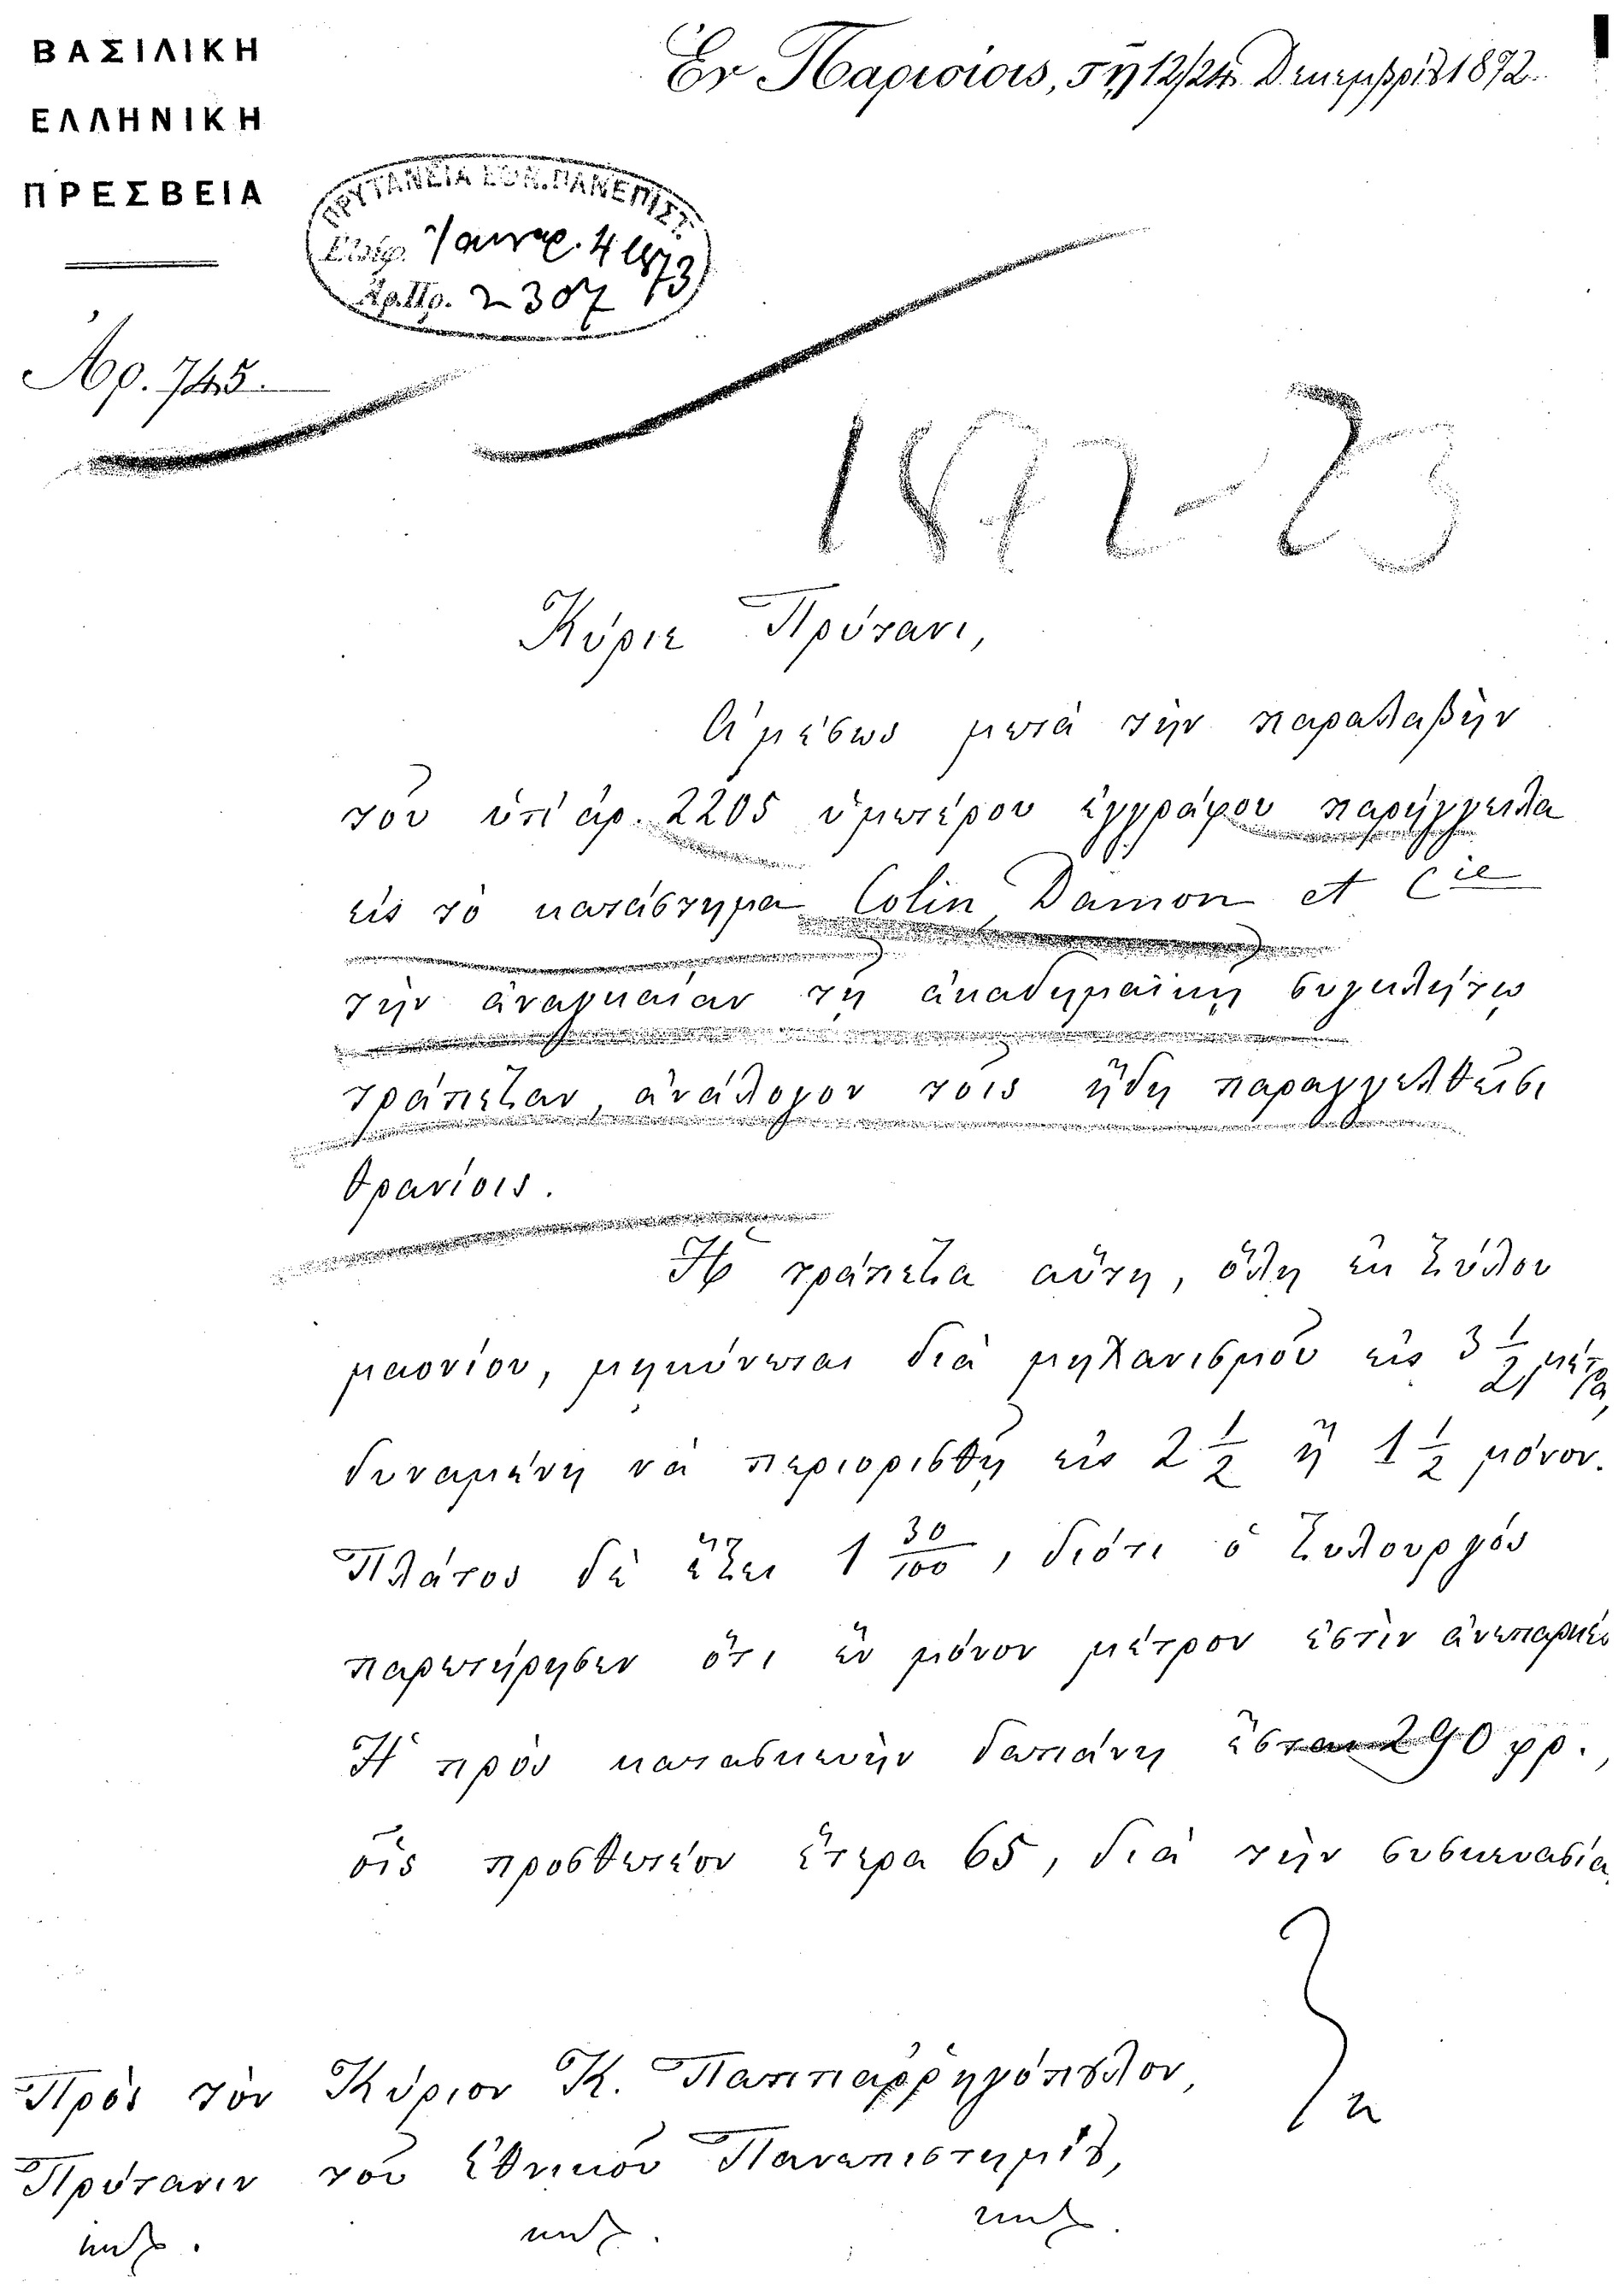 ΒΑΣΙΛΙΚΗ
ΕΛΛΗΝΙΚΗ
ΠΡΕΣΒΕΙΑ
Ἐν Παρισίοις, τῇ 12/24 Δεκεμβρίου 1872.
ΠΡΥΤΑΝΕΙΑ ΕΘΝ. ΠΑΝΕΠΙΣΤ.
Εἰσήρ. Ἰανουαρ. 4 1873
Ἀρ.Πρ. 2307
Ἀρ. 745.
1872-73
Κύριε Πρύτανι,
Ἀμέσως μετὰ τὴν παραλαβὴν
τοῦ ὑπ' ἀρ. 2205 ὑμετέρου ἐγγράφου παρήγγειλα
εἰς τὸ κατάστημα Colin, Damon et Cie
τὴν ἀναγκαίαν τῇ ἀκαδημαϊκῇ συγκλήτῳ
τράπεζαν, ἀνάλογον τοῖς ἤδη παραγγελθεῖσι
θρανίοις.
Ἡ τράπεζα αὕτη, ὅλη ἐκ ξύλου
μαονίου, μηκύνεται διὰ μηχανισμοῦ εἰς 3 1/2 μέτρα,
δυναμένη νὰ περιορισθῇ εἰς 2 1/2 ἢ 1 1/2 μόνον.
Πλάτος δὲ ἔχει 1 30/100, διότι ὁ ξυλουργὸς
παρετήρησεν ὅτι ἓν μόνον μέτρον ἐστὶν ἀνεπαρκές
Ἡ πρὸς κατασκευὴν δαπάνη ἔσται 290 φρ.,
οἷς προσθετέον ἕτερα 65, διὰ τὴν συσκευασία
Πρὸς τὸν Κύριον Κ. Παππαρρηγόπουλον,
Πρύτανιν τοῦ Ἐθνικοῦ Πανεπιστημίου,
κτλ. κτλ. κτλ.